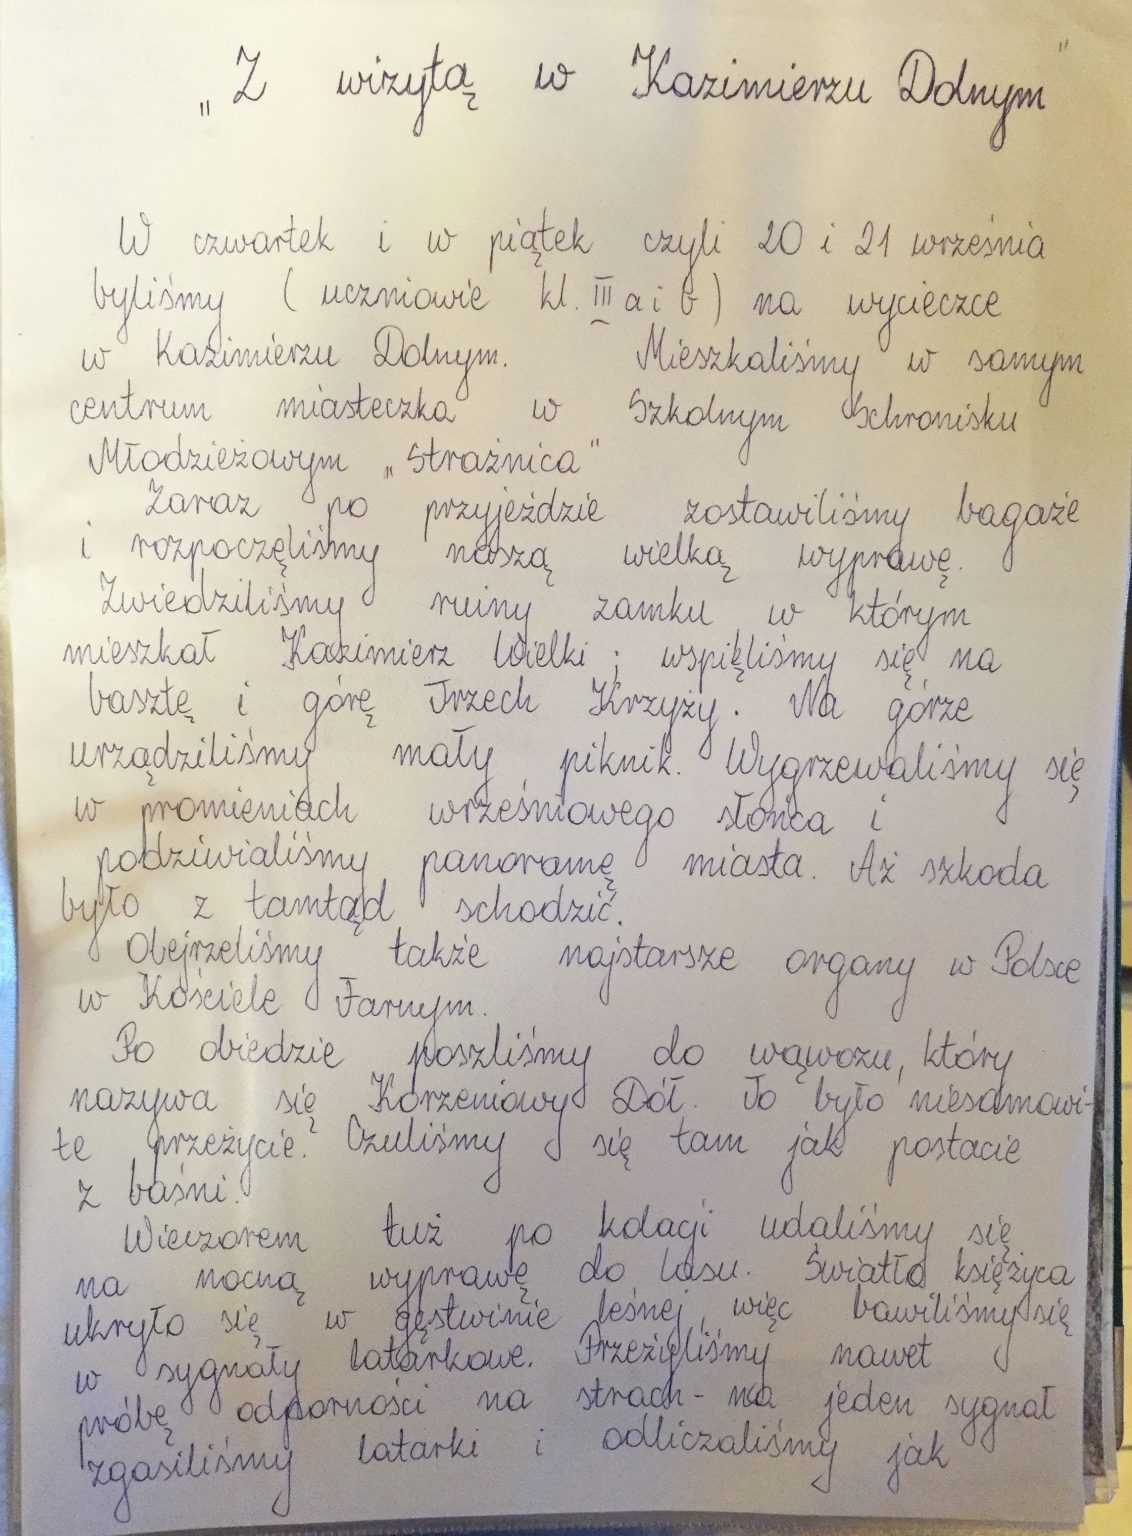 „Z wizytą w Kazimierzu Dolnym"
W czwartek i w piątek czyli 20 i 21 września
byliśmy (uczniowie kl. III a i b) na wycieczce
w Kazimierzu Dolnym. Mieszkaliśmy w samym
centrum miasteczka w Szkolnym Schronisku
Młodzieżowym „Strażnica"
Zaraz po przyjeździe zostawiliśmy bagaże
i rozpoczęliśmy naszą wielką wyprawę.
Zwiedziliśmy ruiny zamku w którym
mieszkał Kazimierz Wielki ; wspięliśmy się na
basztę i górę Trzech Krzyży. Na górze
urządziliśmy mały piknik. Wygrzewaliśmy się
w promieniach wrześniowego słońca i
podziwialiśmy panoramę miasta. Aż szkoda
było z tamtąd schodzić.
Obejrzeliśmy także najstarsze organy w Polsce
w Kościele Farnym.
Po obiedzie poszliśmy do wąwozu, który
nazywa się Korzeniowy Dół. To było niesamowi-
te przeżycie. Czuliśmy się tam jak postacie
z baśni.
Wieczorem tuż po kolacji udaliśmy się
na nocną wyprawę do lasu. Światło księżyca
ukryło się w gęstwinie leśnej, więc bawiliśmy się
w sygnały latarkowe. Przeżyliśmy nawet
próbę odporności na strach - na jeden sygnał
zgasiliśmy latarki i odliczaliśmy jak